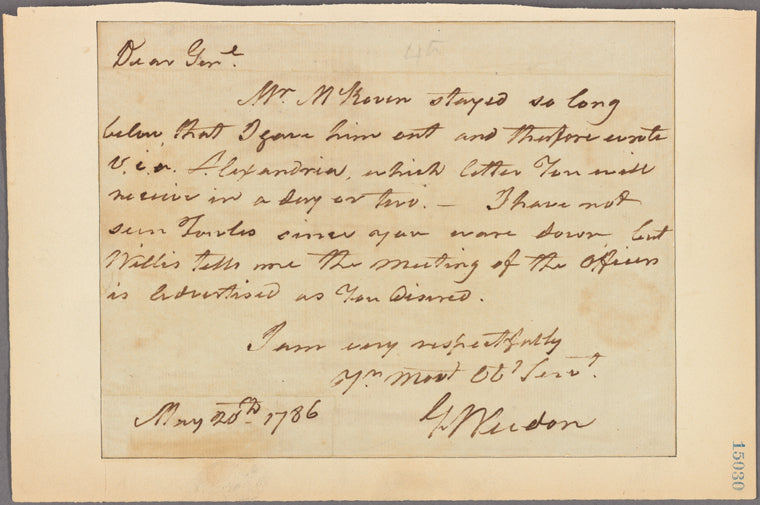 4th
Dear Genl.
Mr. McKoven stayed so long
below, that I gave him out and therefore wrote
V.i.a. Alexandria, which letter You will
receive in a day or two. — I have not
seen Towles since you ware down, but
Willis tells me the meeting of the Officers
is Advertised as You disired.
I am very respectfully
Yr. most Obt. Servt.
G Weedon
May 20th. 1786
15030